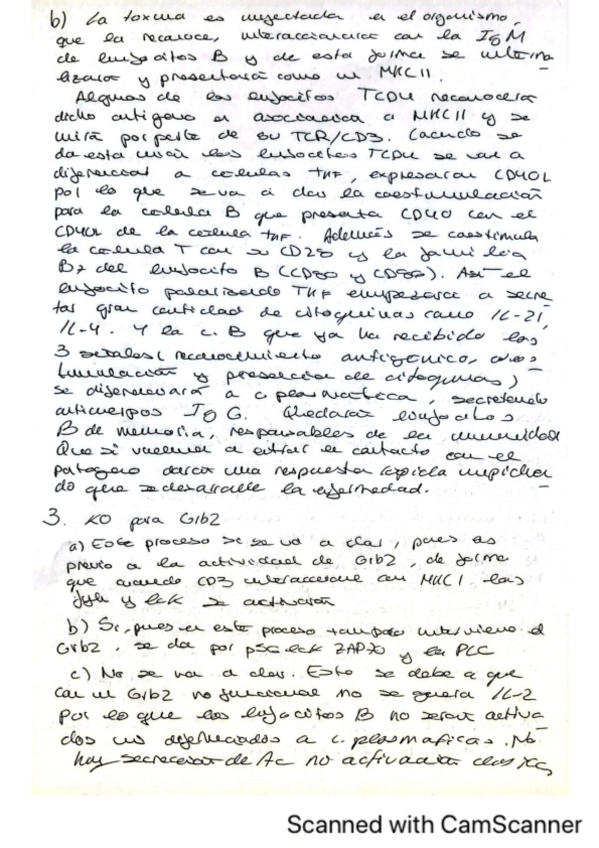 b) La toxina es inyectada en el organismo,
que la reconoce, interaccionará con la IgM
de linfocitos B y de esta forma se interna
lizará y presentará como un MHCII.
Algunos de los linfocitos TCD4 reconocerán
dicho antígeno en asociación a MHCII y se
unirá por parte de su TCR/CD3. Cuando se
da esta unión los linfocitos TCD4 se van a
diferenciar a células THF, expresarán CD40L
por lo que se va a dar la coestimulación
para la célula B que presenta CD40 con el
CD40L de la célula THF. Además se coestimula
la célula T con su CD28 y la familia
B7 del linfocito B (CD80 y CD86). Así el
linfocito THF empezará a secre
tar gran cantidad de citoquinas como IL-21,
IL-4. Y la c. B que ya ha recibido las
3 señales (reconocimiento antigénico, coes
timulación y presencia de citoquinas)
se diferenciará a c plasmática, secretando
anticuerpos IgG. Quedarán linfocitos
B de memoria, responsables de la inmunidad
que si vuelven a entrar en contacto con el
patógeno darán una respuesta rápida impidien
do que se desarrolle la enfermedad.
3. KO para Grb2
a) Este proceso si se va a dar, pues es
previo a la actividad de Grb2, de forma
que cuando CD3 interacciona con MHC I las
fyn y lck se activan
b) Si, pues en este proceso tampoco interviene el
Grb2, se da por lck ZAP70 y la PLC
c) No se van a dar. Esto se debe a que
con un Grb2 no funcional no se genera IL-2
por lo que los linfocitos B no serán activa
dos ni diferenciados a c. plasmáticas. No
hay secreción de Ac no
Scanned with CamScanner